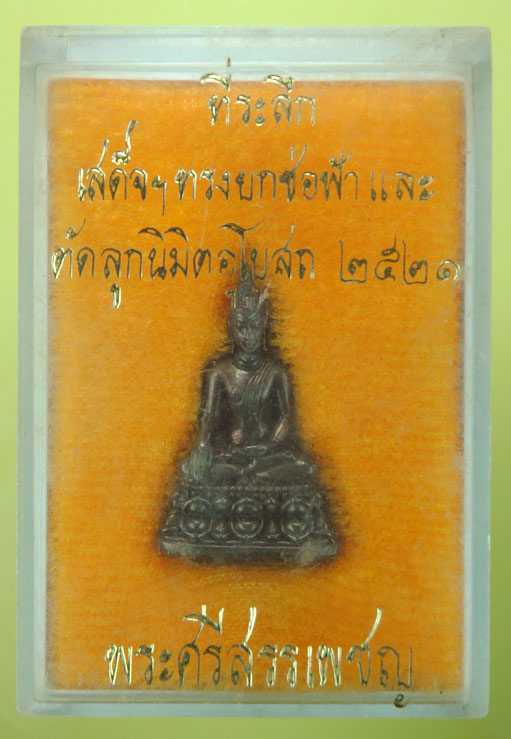 ที่ระลึก
เสด็จฯ ทรงยกช่อฟ้า และ
ตัดลูกนิมิตอุโบสถ ๒๕๒๑
พระศรีสรรเพชญ